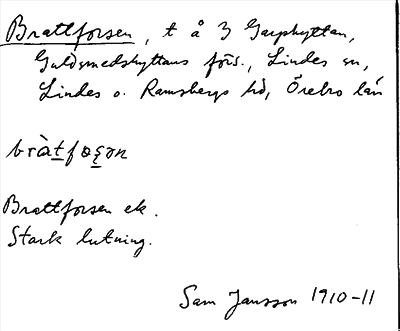 Brattforsen, t å 3 Garphyttan,
Guldsmedshyttans förs., Lindes sn,
Lindes o. Ramsbergs hd, Örebro län
bràtfoṣən
Brattforsen ek.
Stark lutning.
Sam Jansson 1910-11